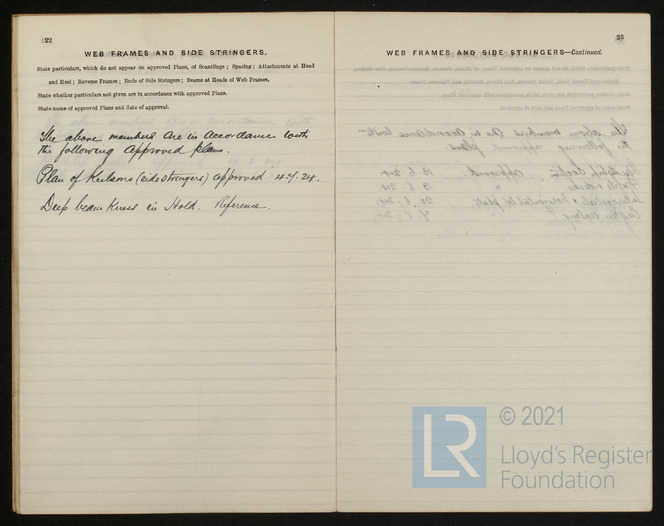 22
WEB FRAMES AND SIDE STRINGERS.
State particulars, which do not appear on approved Plans, of Scantlings; Spacing; Attachments at Head
and Heel; Reverse Frames; Ends of Side Stringers; Beams at Heads of Web Frames.
State whether particulars not given are in accordance with approved Plans.
State name of approved Plans and date of approval.
The above members are in accordance with
the following approved plans.
Plan of Keelsons (side stringers) approved 24.
Deep beam Knees in Hold. Reference.
23
WEB FRAMES AND SIDE STRINGERS—Continued.
LR
© 2021
Lloyd's Register
Foundation